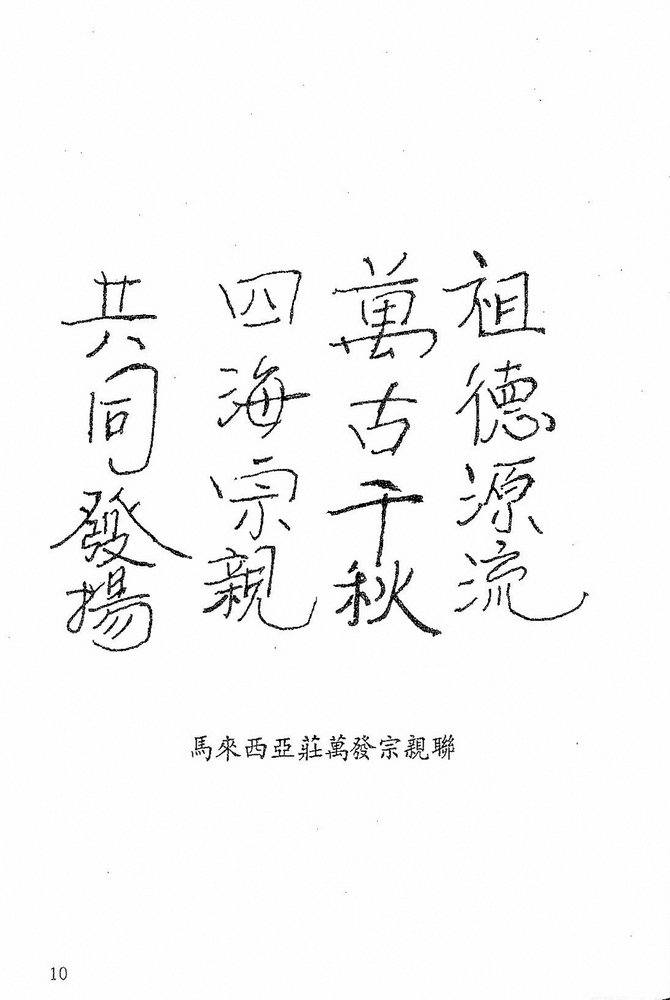 祖德源流
萬古千秋
四海宗親
共同發揚
馬來西亞莊萬發宗親聯
10